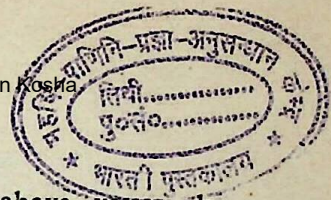 n Kosha
महर्षि पाणिनि-प्रज्ञा-अनुसन्धान
तिथी..............
पु०सं०..............
* भारती पुस्तकालय *
above